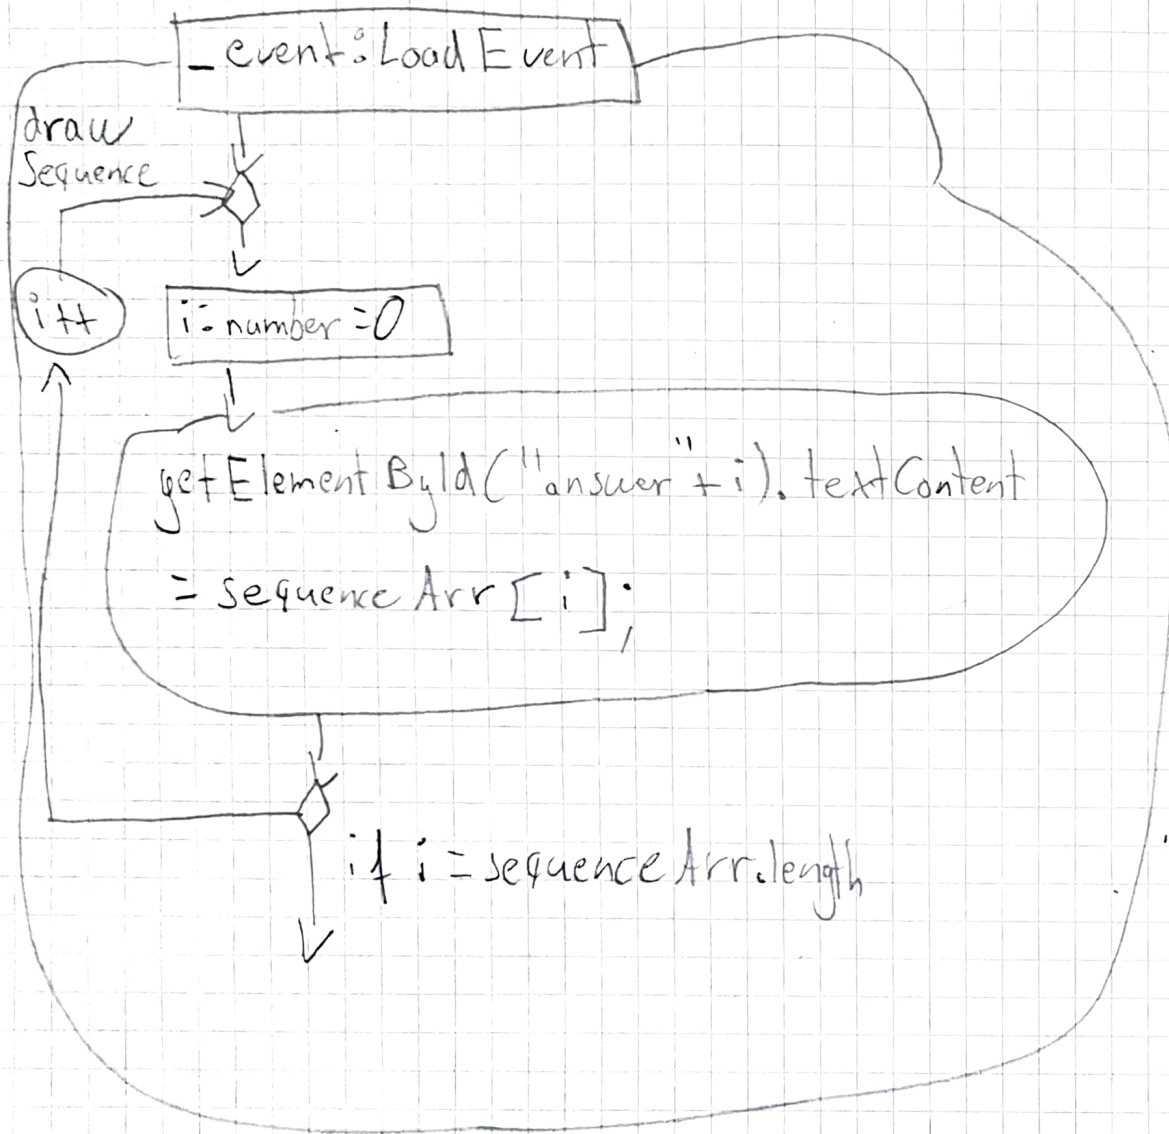 _event:LoadEvent
draw
Sequence
i++
i:number=0
getElementById("answer"+i).textContent
=sequenceArr[i];
if i=sequenceArr.length